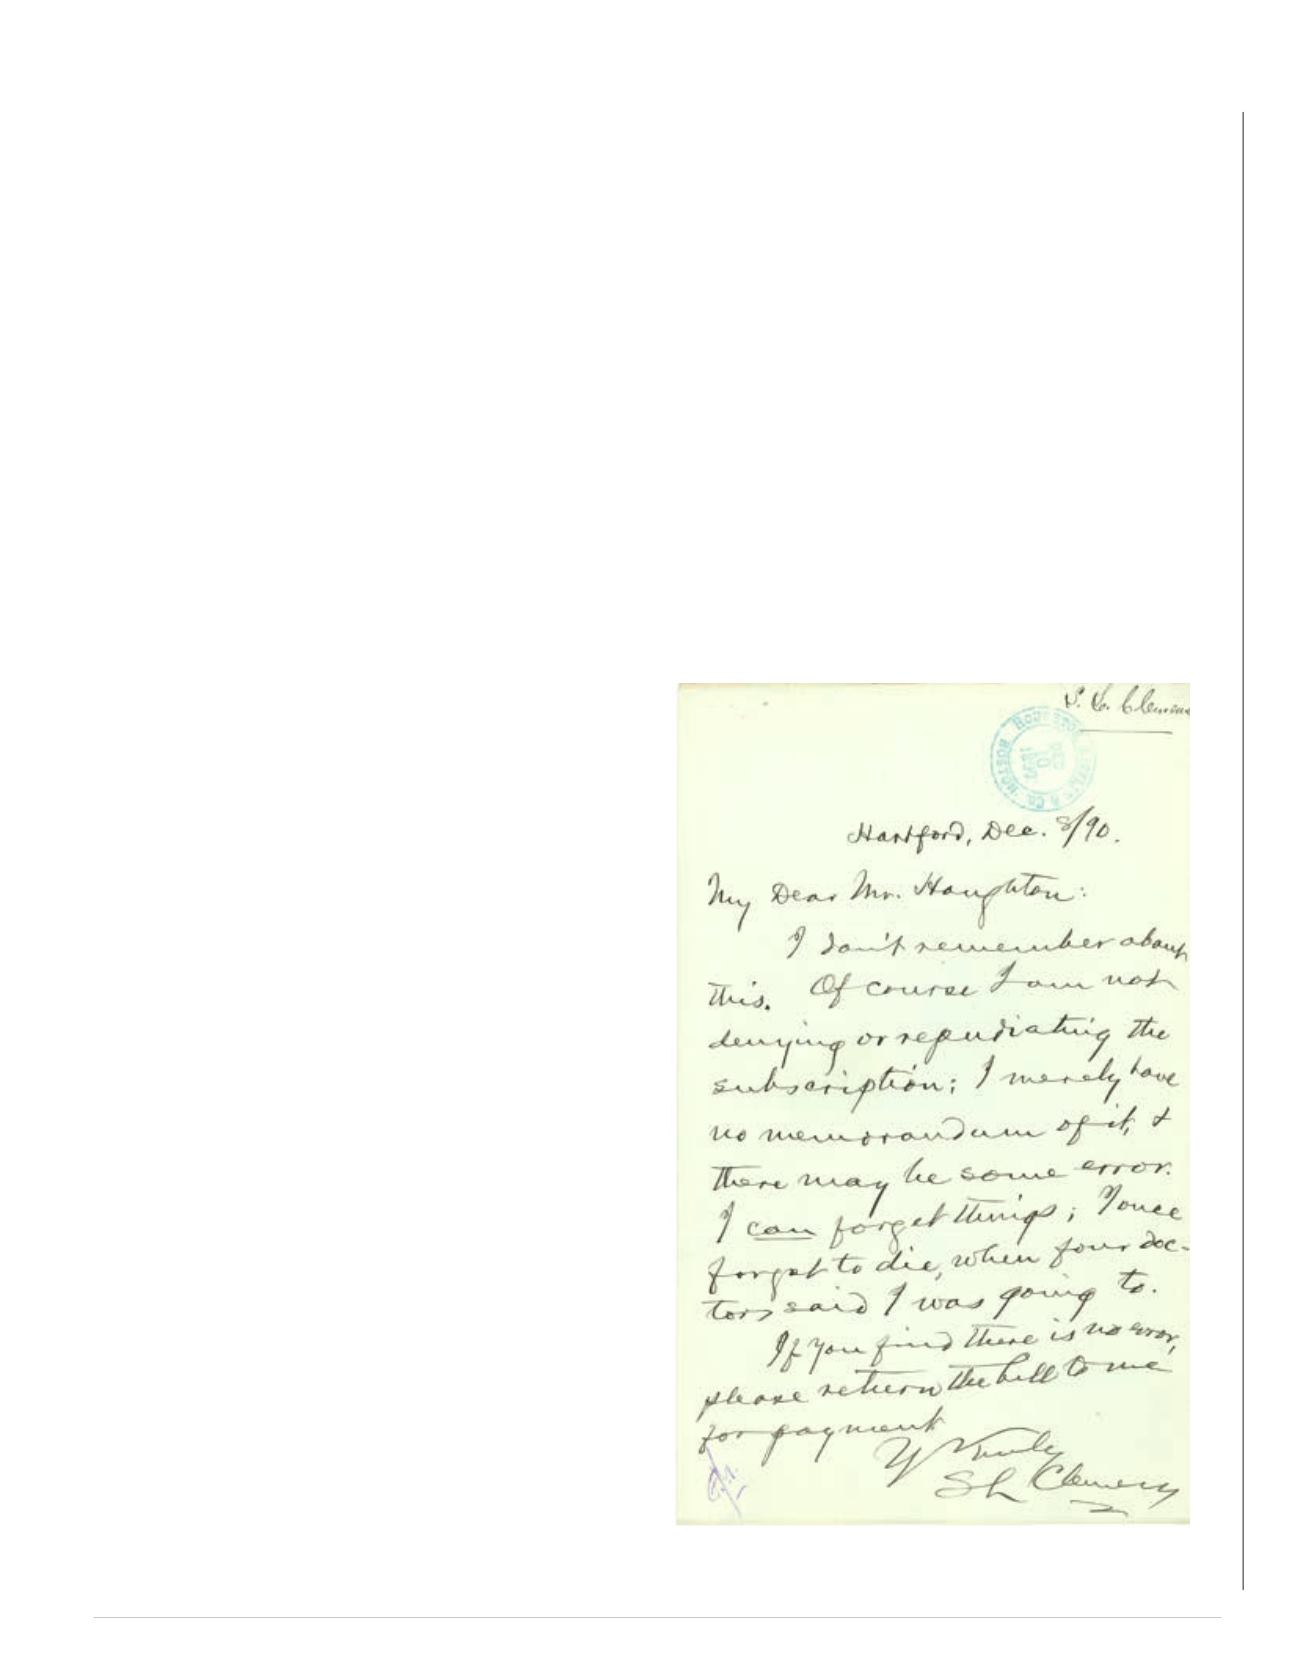 S. L. Clemens
HOUGHTON, MIFFLIN & CO. BOSTON.
DEC
10
Hartford, Dec. 8/90.
My Dear Mr. Houghton:
I don't remember about
this. Of course I am not
denying or repudiating the
subscription; I merely have
no memorandum of it, &
there may be some error.
I can forget things; I once
forgot to die, when four doc-
tors said I was going to.
If you find there is no error,
please return the bill to me
for payment
Y Truly
SL Clemens